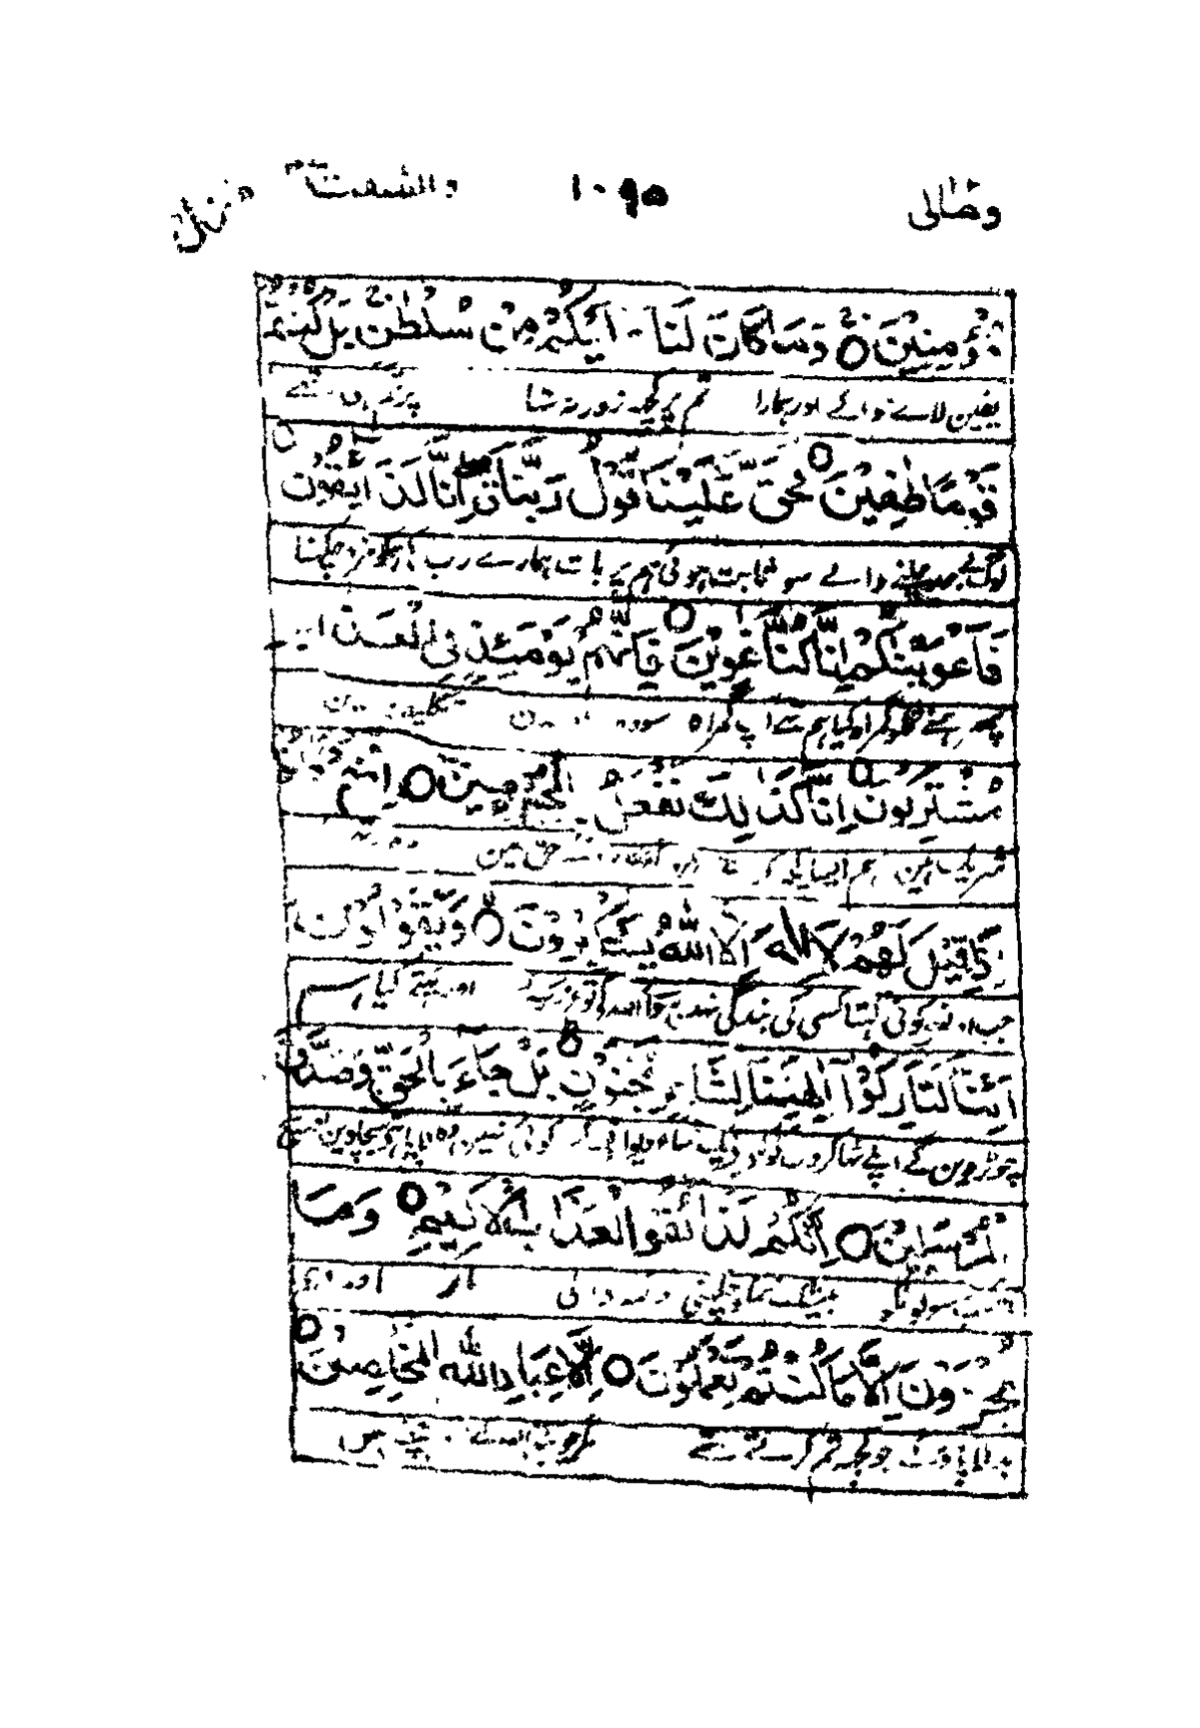 وَمَالِیَ ۱۰۹۵ والصّٰفّٰت
مُؤْمِنِیْنَ ○ وَمَا كَانَ لَنَا عَلَیْكُمْ مِنْ سُلْطٰنٍ بَلْ كُنْتُمْ
یقین لانے والے اور ہمارا تم پر کچھ زور نہ تھا پر تمہیں تھے
قَوْمًا طٰغِیْنَ ○ فَحَقَّ عَلَیْنَا قَوْلُ رَبِّنَا اِنَّا لَذَآئِقُوْنَ
لوگ بے حد چلنے والے سو ثابت ہوئی ہم پر بات ہمارے رب کی ہمکو مزہ چکھنا
فَاَغْوَیْنٰكُمْ اِنَّا كُنَّا غٰوِیْنَ ○ فَاِنَّهُمْ یَوْمَئِذٍ فِی الْعَذَابِ
پھر ہمنے تمکو گمراہ کیا ہم تھے آپ گمراہ سو وہ دن تکلیف میں
مُشْتَرِكُوْنَ ○ اِنَّا كَذٰلِكَ نَفْعَلُ بِالْمُجْرِمِیْنَ ○ اِنَّهُمْ
شریک ہیں ہم ایسا کرتے ہیں حق میں
اِذَا قِیْلَ لَهُمْ لَا اِلٰهَ اِلَّا اللّٰهُ یَسْتَكْبِرُوْنَ ○ وَیَقُوْلُوْنَ
جب ان کوئی کہتا کسی کی بندگی نہیں سوا اللہ کے تو غرور کرتے اور کہتے کیا ہم
اَئِنَّا لَتَارِكُوْۤا اٰلِهَتِنَا لِشَاعِرٍ مَّجْنُوْنٍ ○ بَلْ جَآءَ بِالْحَقِّ وَصَدَّقَ
چھوڑ دین گے اپنے ٹھاکروں کو ایک شاعر دیوانے کے کوئی نہیں وہ
الْمُرْسَلِیْنَ ○ اِنَّكُمْ لَذَآئِقُوا الْعَذَابِ الْاَلِیْمِ ○ وَمَا
بیشک تمکو چکھنی دکھ والی مار اور وہی
تُجْزَوْنَ اِلَّا مَا كُنْتُمْ تَعْمَلُوْنَ ○ اِلَّا عِبَادَ اللّٰهِ الْمُخْلَصِیْنَ ○
بدلا پاؤگے جو کچھ تم کرتے تھے مگر جو بندے اللہ کے ہیں